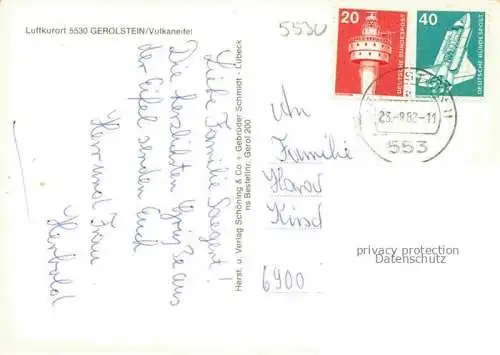 Luftkurort 5530 GEROLSTEIN/Vulkaneifel
5530
20
DEUTSCHE BUNDESPOST
40
DEUTSCHE BUNDESPOST
23.-9.82-11
553
Liebe Familie
Die herzlichsten Grüße aus
der Eifel senden Euch
Herr und Frau
Herbold
Herst. u. Verlag Schöning & Co + Gebrüder Schmidt - Lübeck
ns Bestellnr. Gerol 200
An
Familie
Kirsch
6900
privacy protection
Datenschutz